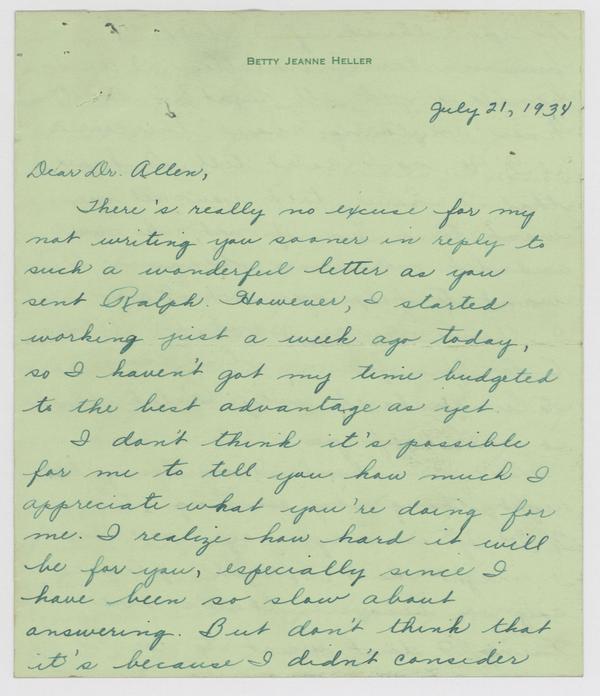 BETTY JEANNE HELLER
July 21, 1934
Dear Dr. Allen,
There's really no excuse for my
not writing you sooner in reply to
such a wonderful letter as you
sent Ralph. However, I started
working just a week ago today,
so I haven't got my time budgeted
to the best advantage as yet.
I don't think it's possible
for me to tell you how much I
appreciate what you're doing for
me. I realize how hard it will
be for you, especially since I
have been so slow about
answering. But don't think that
it's because I didn't consider